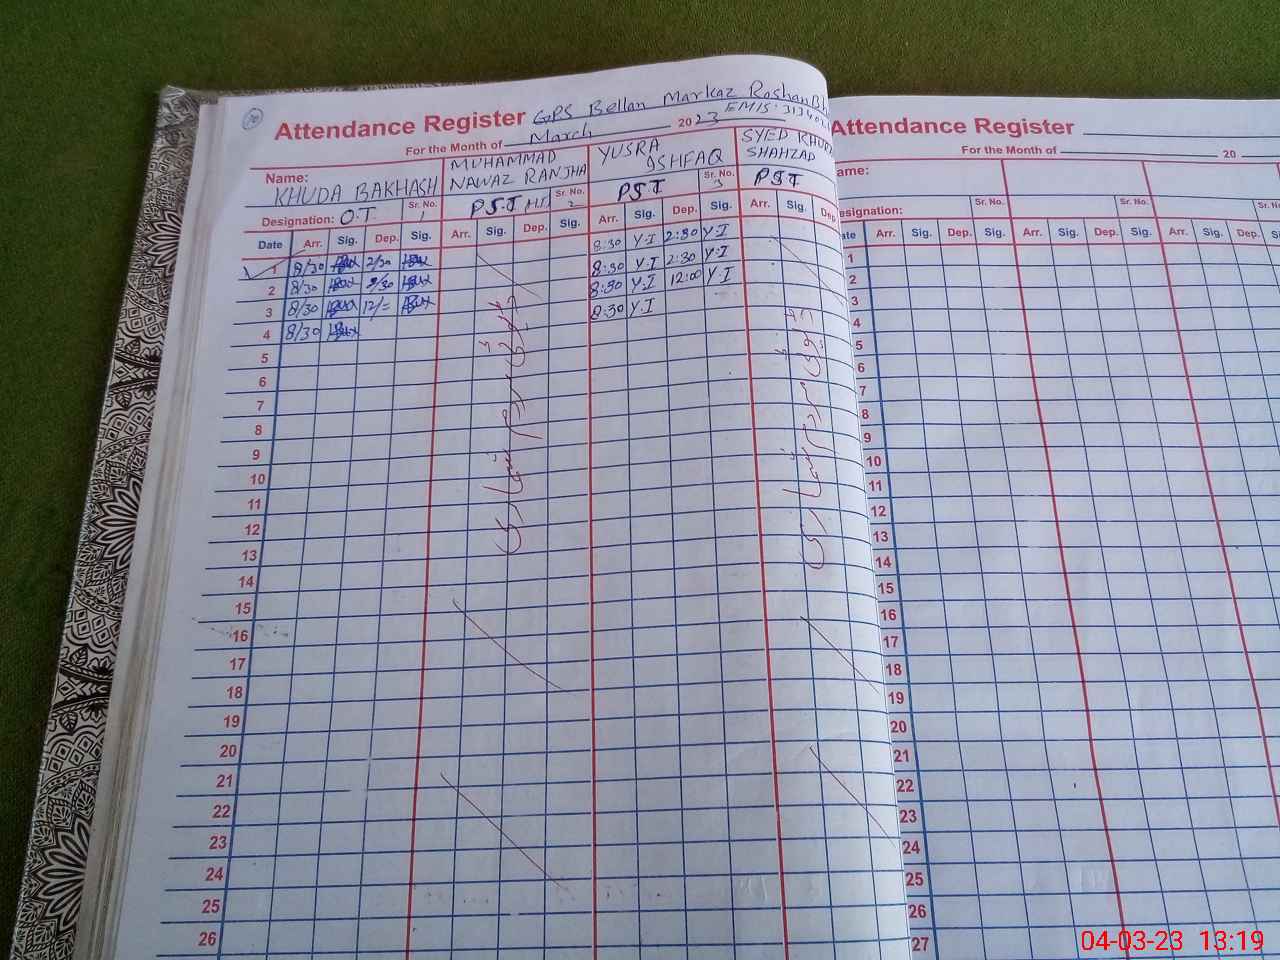 Attendance Register GPS Bellan Markaz Roshan Bh
For the Month of March 2023 EMIS. 31340
Name: KHUDA BAKHASH MUHAMMAD NAWAZ RANJHA YUSRA ISHFAQ SYED KHUR SHAHZAD
Designation: O.T Sr. No. 1 PST Sr. No. 2 PST Sr. No. 3 PST
Date Arr. Sig. Dep. Sig. Arr. Sig. Dep. Sig. Arr. Sig. Dep. Sig. Arr. Sig. Dep
1 8/30 2/30 8:30 Y.I 2:30 Y.I
2 8/30 2/30 8:30 Y.I 2:30 Y.I
3 8/30 12/= 8:30 Y.I 12:00 Y.I
4 8/30 8:30 Y.I
5
6
7
8
9
10
11
12
13
14
15
16
17
18
19
20
21
22
23
24
25
26
مردم شماری
مردم شماری
Attendance Register
For the Month of 20
ame:
esignation: Sr. No. Sr. No. Sr. No
ate Arr. Sig. Dep. Sig. Arr. Sig. Dep. Sig. Arr. Sig. Dep. Si
1
2
3
4
5
6
7
8
9
10
11
12
13
14
15
16
17
18
19
20
21
22
23
24
25
26
27
04-03-23 13:19